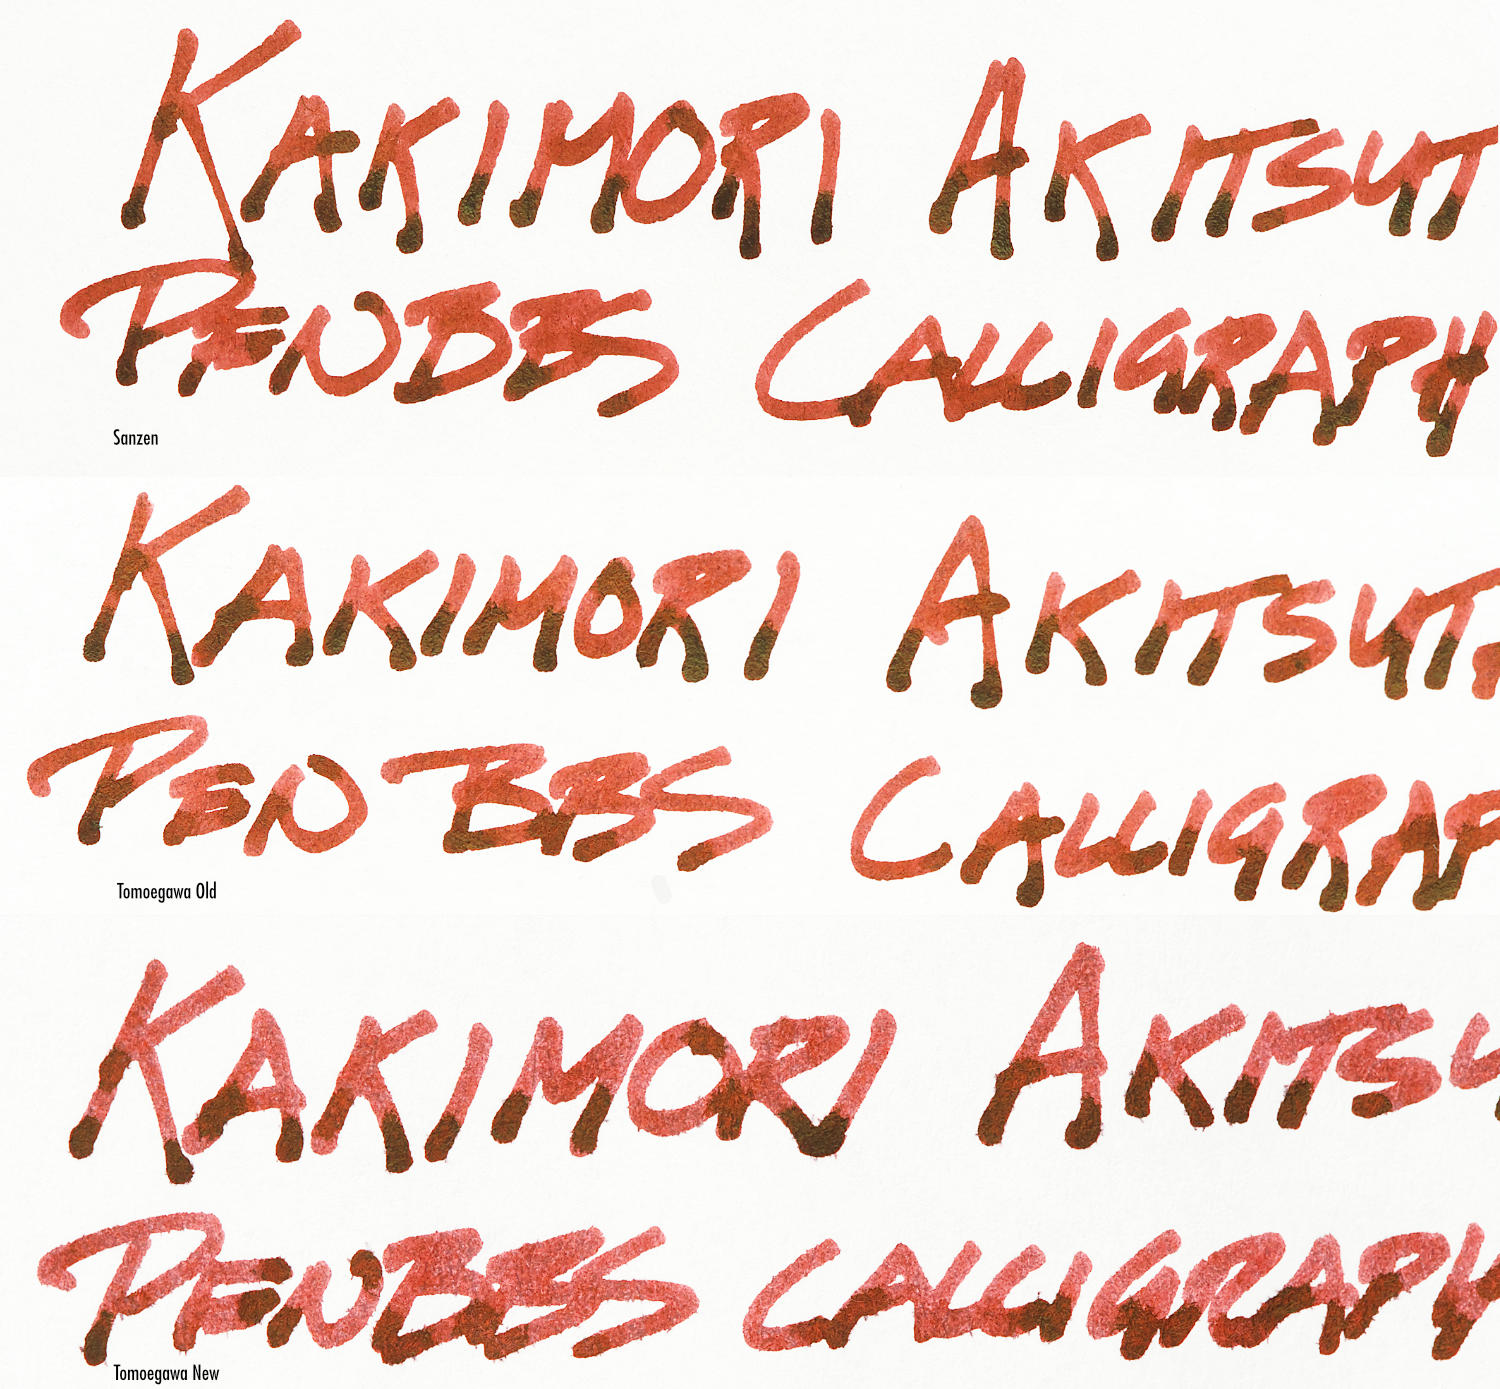 KAKIMORI AKITSUT
PENBBS CALLIGRAPH
Sanzen
KAKIMORI AKITSUT
PEN BBS CALLIGRAP
Tomoegawa Old
KAKIMORI AKITSU
PENBBS CALLIGRAPH
Tomoegawa New